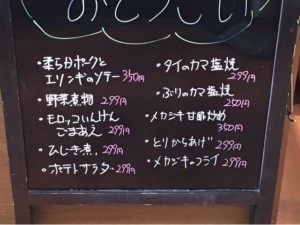 おとうしい
・柔らかポークと
エリンギのソテー 350円
・野菜煮物 299円
・モロッコいんげん
ごまあえ 299円
・ひじき煮 299円
・ポテトサラダ 299円
・タイのカマ塩焼
299円
・ぶりのカマ塩焼
250円
・メカジキ甘酢炒め
350円
・とりからあげ 299円
・メカジキのフライ 299円